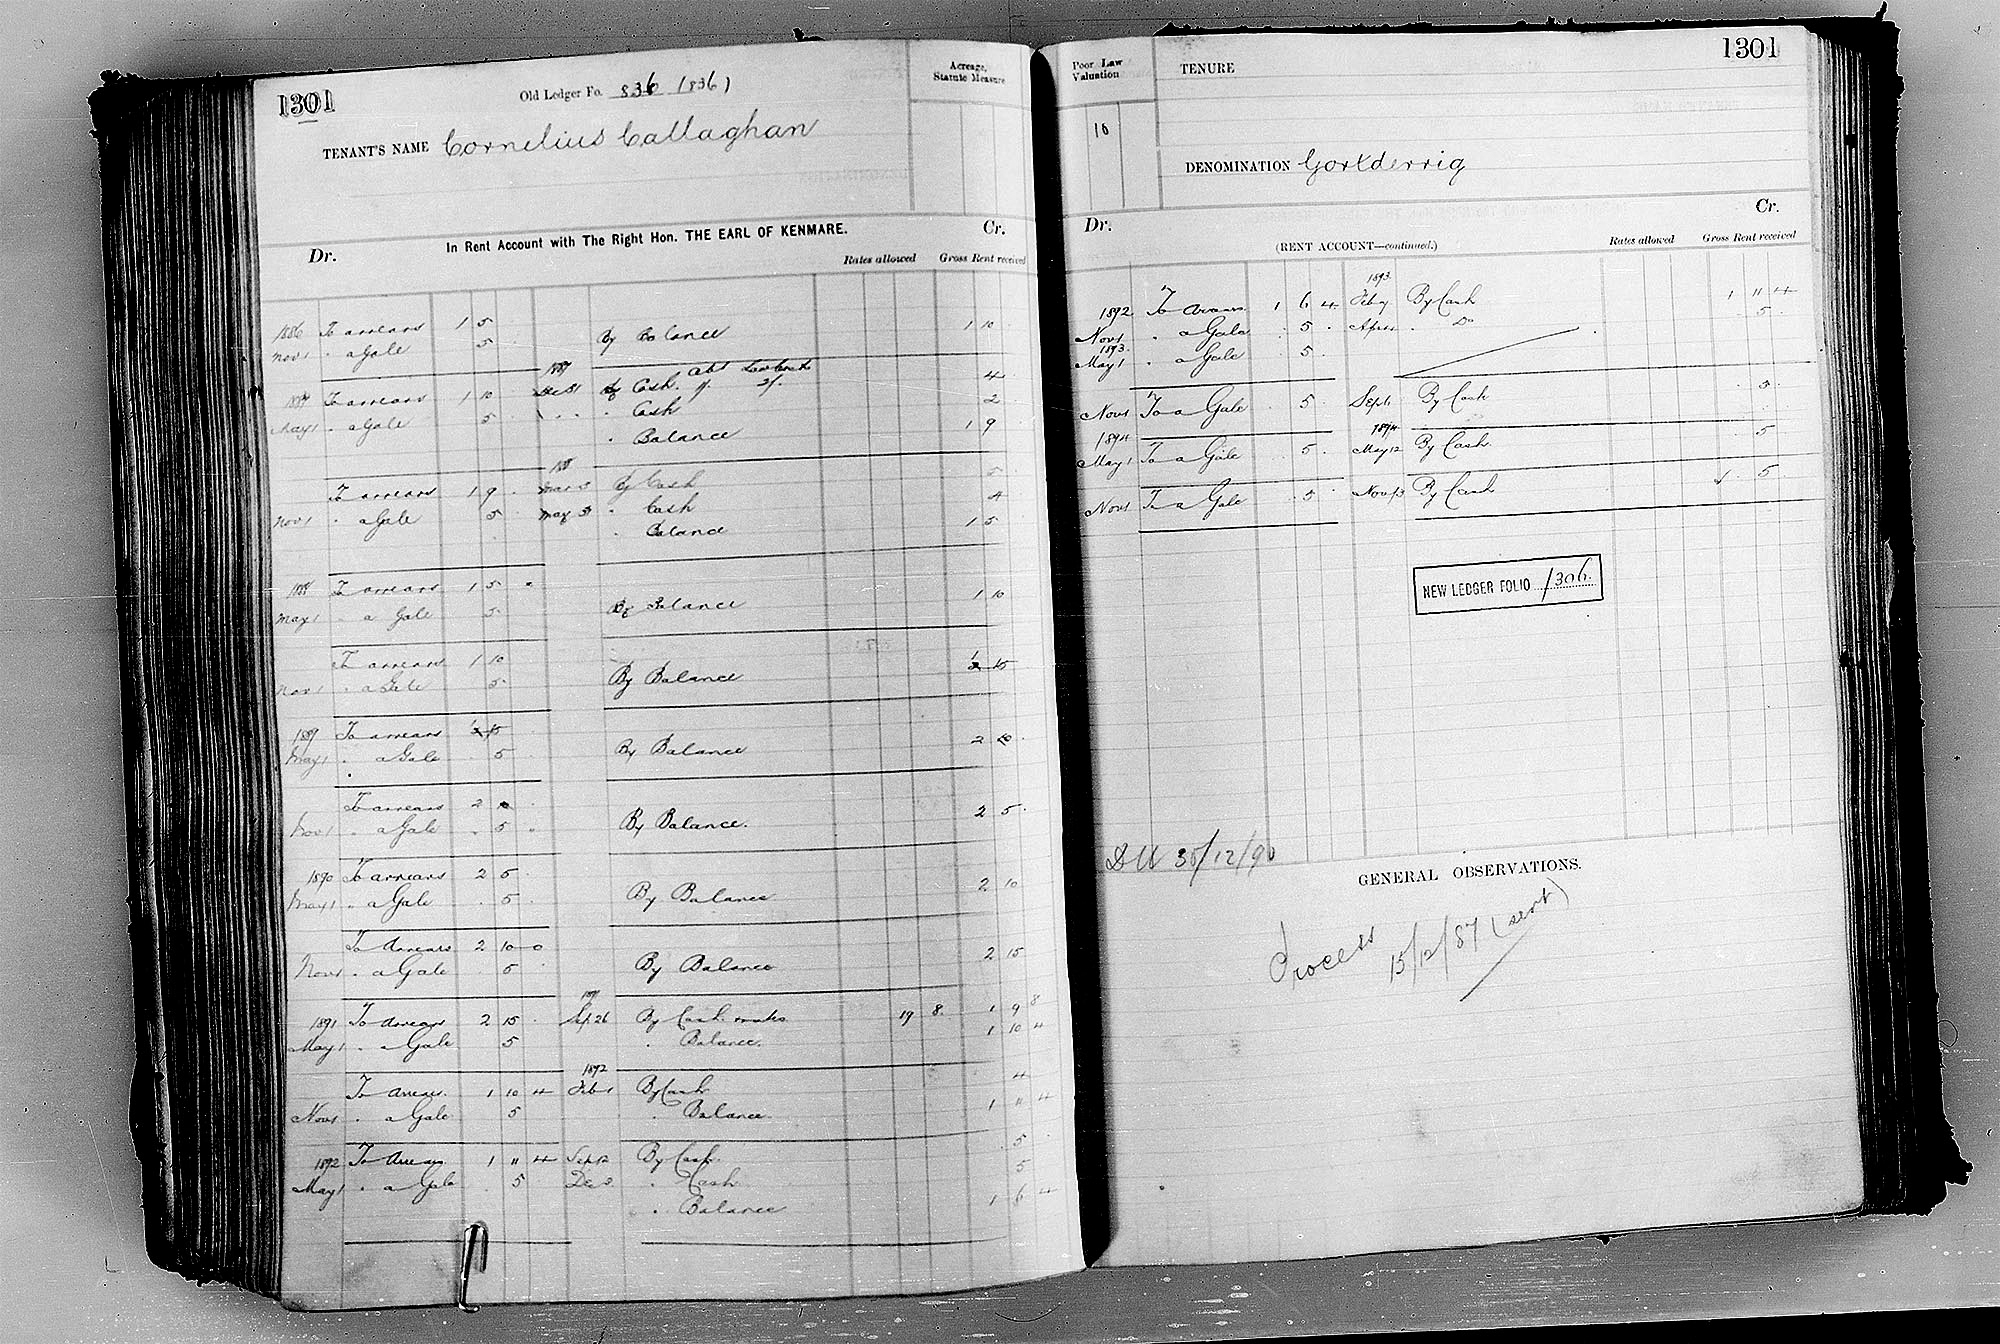 1301
Old Ledger Fo. 836 (836)
Acreage, Statute Measure
TENANT'S NAME Cornelius Callaghan
In Rent Account with The Right Hon. THE EARL OF KENMARE.
Dr. Cr.
Rates allowed Gross Rent received
1886 To arrears 1 5
Nov 1 " a Gale 5 By Balance 1 10
1887
1887 To arrears 1 10 Dec 31 By Cash 4
May 1 " a Gale 5 " Cash 2
" Balance 1 9
To arrears 1 9 By Cash 5
Nov 1 " a Gale 5 May 31 " Cash 4
" Balance 1 5
1888 To arrears 1 5
May 1 " a Gale 5 By Balance 1 10
To arrears 1 10
Nov 1 " a Gale 5 By Balance 1 15
1889 To arrears 1 15
May 1 " a Gale 5 By Balance 2 0
To arrears 2 0
Nov 1 " a Gale 5 By Balance. 2 5
1890 To arrears 2 5
May 1 " a Gale 5 By Balance 2 10
To Arrears 2 10 0
Nov 1 " a Gale 5 By Balance 2 15
1891
1891 To Arrears 2 15 Sep 26 By Cash 19 8 1 9 8
May 1 " a Gale 5 " Balance. 1 10 4
1892
To Arrears 1 10 4 Feb 1 By Cash 4
Nov 1 " a Gale 5 " Balance 1 11 4
1892 To Arrears 1 11 4 Sep 12 By Cash 5
May 1 " a Gale 5 Dec " Cash 5
" Balance 1 6 4
1301
Poor Law Valuation
TENURE
10
DENOMINATION Gortderrig
Dr. Cr.
(RENT ACCOUNT—continued.)
Rates allowed Gross Rent received
1893
1892 To Arrears 1 6 4 Feb By Cash 1 11 4
Nov 1 " a Gale 5 April " Do 5
1893
May 1 " a Gale 5
Nov 1 To a Gale 5 Sept By Cash 5
1894 1894
May 1 To a Gale 5 May 12 By Cash 5
Nov 1 To a Gale 5 Nov 13 By Cash 5
NEW LEDGER FOLIO 1306.
30/12/90
GENERAL OBSERVATIONS.
Process 15/12/87 (sent)